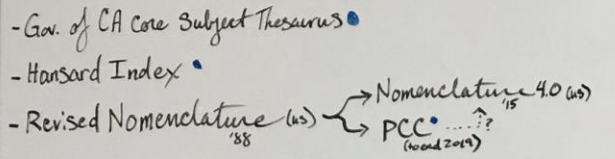 - Gov. of CA Core Subject Thesaurus
- Hansard Index
- Revised Nomenclature (us)
'88
Nomenclature 4.0 (us)
'15
PCC ?
(to end 2019)